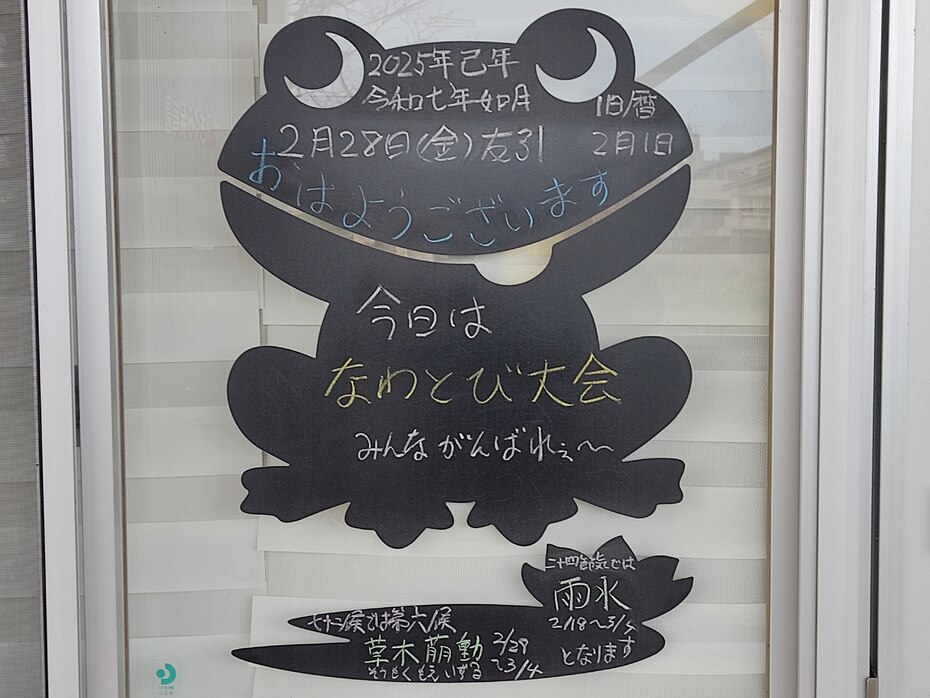 2025年己年
令和七年如月
旧暦
2月28日(金)友引
2月1日
おはようございます
今日は
なわとび大会
みんながんばれぇ〜〜
二十四節気では
雨水
2/18〜3/4
となります
七十二候では第六候
草木萌動
そうもくもえいずる
2/28
〜3/4